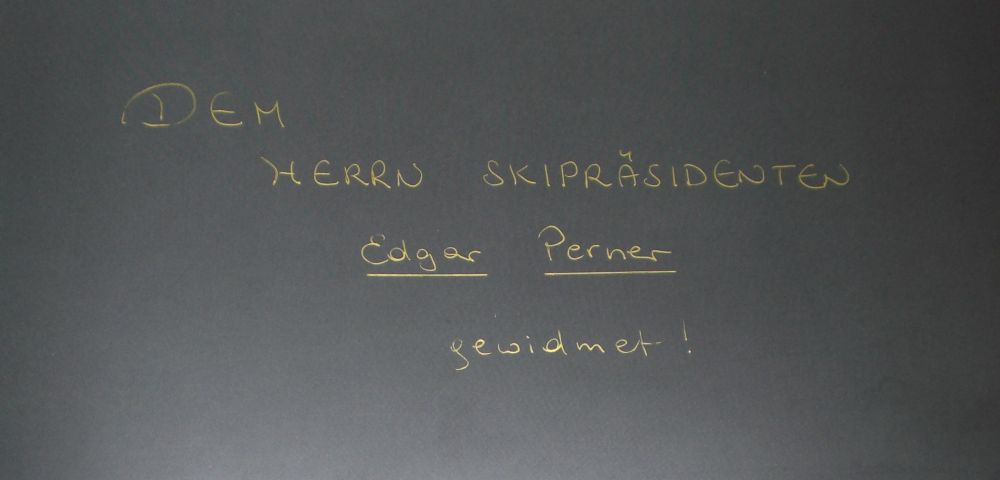 DEM
HERRN SKIPRÄSIDENTEN
Edgar Perner
gewidmet!